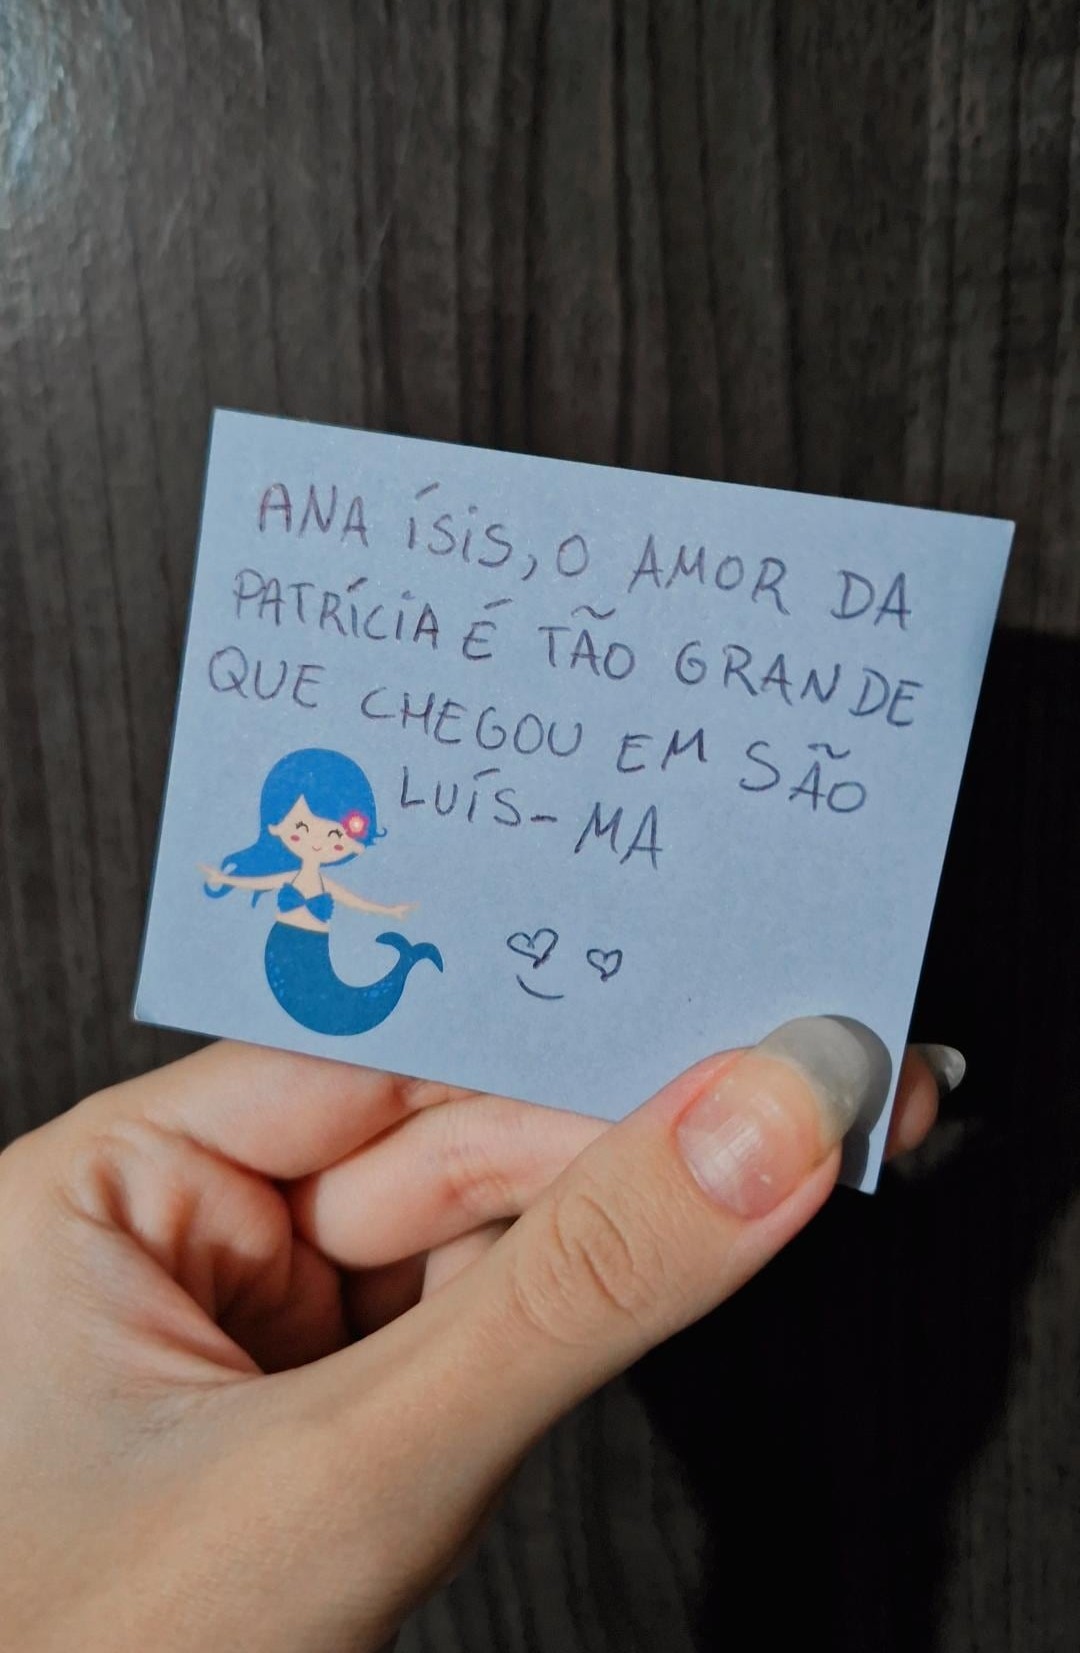 ANA ÍSIS, O AMOR DA
PATRÍCIA É TÃO GRANDE
QUE CHEGOU EM SÃO
LUÍS-MA